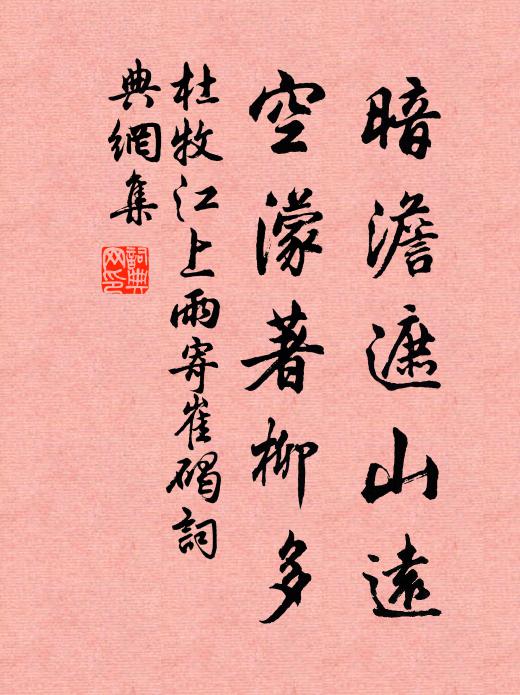 暗澹遮山遠
空濛著柳多
杜牧江上雨寄崔碣詞
典網集
詞典
网印